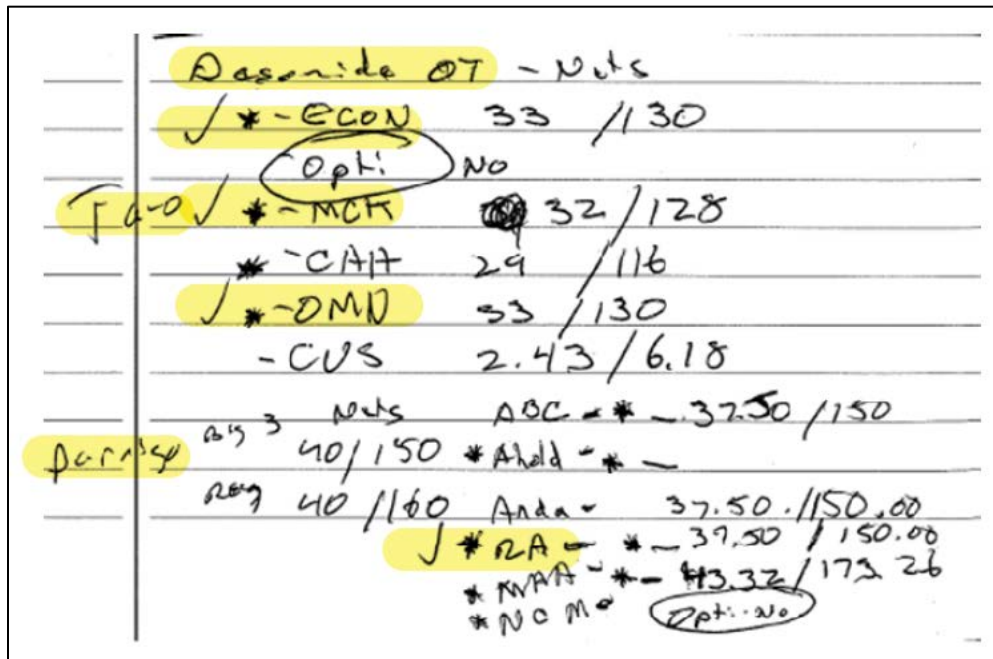 Desonide OT - Nets
✓ * - ECON 33 /130
Opti NO
Taro ✓ * - MCK 32 / 128
* - CAH 29 / 116
✓ * - OMN 33 / 130
- CVS 2.43 / 6.18
Big 3 Nets ABC - * - 37.50 / 150
Perrigo 40/150 * Ahold - * -
Reg 40 /160 Anda - 37.50 / 150.00
✓ * RA - * - 37.50 / 150.00
* - * - 43.32 / 173.26
* NC M Opti-No